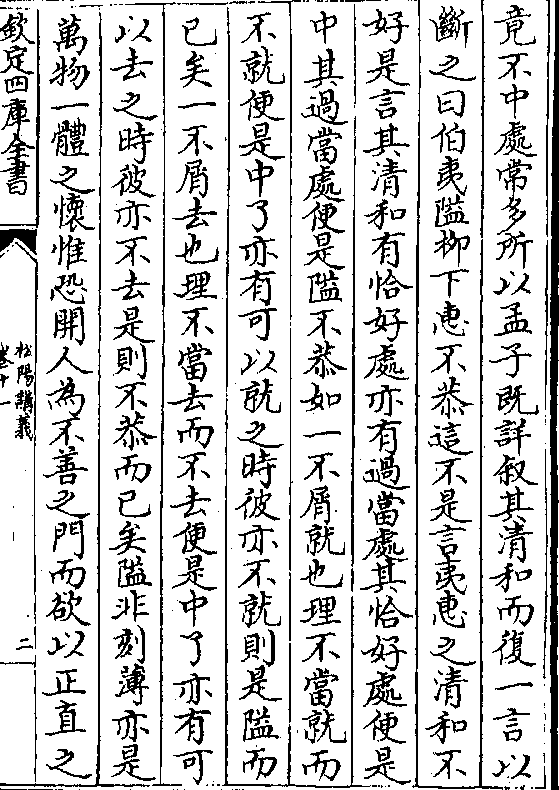 竟不中處常多所以孟子既詳叙其清和而復一言以
斷之曰伯夷隘栁下惠不恭這不是言夷惠之清和不
好是言其清和有恰好處亦有過當處其恰好處便是
中其過當處便是隘不恭如一不屑就也理不當就而
不就便是中了亦有可以就之時彼亦不就則是隘而
已矣一不屑去也理不當去而不去便是中了亦有可
以去之時彼亦不去是則不恭而已矣隘非刻薄亦是
萬物一體之懷惟恐開人為不善之門而欲以正直之
欽定四庫全書
松陽講義
卷十一
二